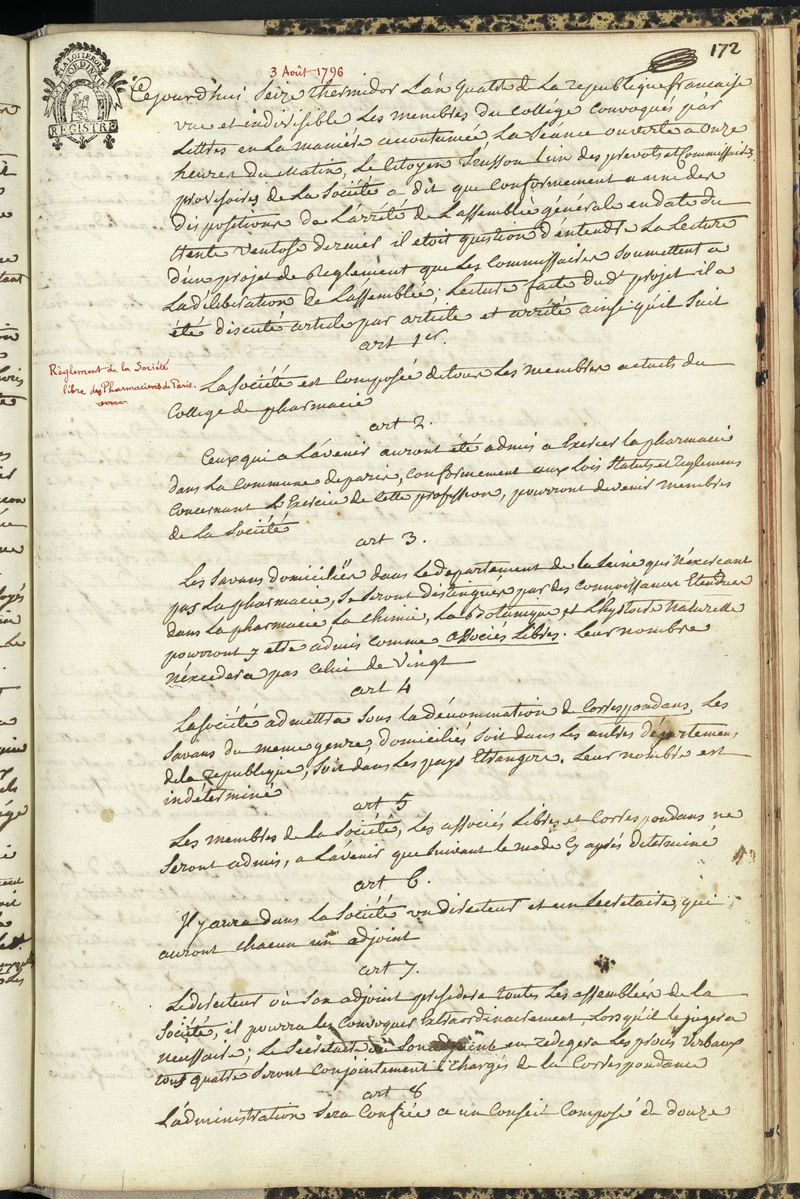 172
3 Août 1796
LA LOI
REGISTRE
Cejourd'hui Seize thermidor L'an quatre de La republique francaise
une et indivisible Les membres du Collége Convoqués par
Lettres en La maniére accoutumée La Séance ouverte a onze
heures du Matin, Le Citoyen un des prevots et Commissaires
provisoires de La Société a dit que Conformement a une des
dispositions de L'arrêté de L'assemblée générale en date du
trente Ventose dernier il etoit question d'entendre La Lecture
d'un projet de Reglement que Les Commissaires Soumettent a
La déliberation de L'assemblée; Lecture faite dud.t projet il a
été discuté article par article et arrêté ainsi qu'il Suit
art 1er.
Règlement de la Société
libre des Pharmaciens de Paris.
La Société est Composée de tous Les membres actuels du
College de pharmacie
art 2.
Ceux qui a L'avenir auront été admis a Exercer la pharmacie
dans La Commune de paris, Conformement aux Lois Statuts et reglemens
Concernant L'Exercice de Cette profession, pourront devenir membres
de La Société
art 3.
Les Savans domiciliés dans Le departement de la Seine qui n'éxercant
pas La pharmacie, Se Seront distingués par des Connoissances Etendues
dans La pharmacie, La Chimie, La Botanique et L'hystoire Naturelle
pourront y etre admis comme associés Libres. Leur nombre
n'éxcedera pas Celui de Vingt
art 4
La Société admettra Sous La dénomination de Correspondans, Les
Savans du meme genre, domiciliés Soit dans Les autres départemens
de la republique, Soit dans Les pays Etrangers. Leur nombre est
indéterminé
art 5
Les membres de La Société, Les associés Libres et Correspondans ne
Seront admis, a L'avenir que Suivant le mode Cy après determiné
art 6.
Il y aura dans La Société un directeur et un Secretaire, qui
auront chacun un adjoint
art 7.
Le directeur ou Son adjoint presidera toutes Les assemblées de la
Société, il pourra les Convoquer Extraordinairement, Lorsqu'il le jugera
necessaire; Le Secretaire ou Son adjoint en redigera Les procès Verbaux
tous quatre Seront Conjointement Chargés de la Correspondance
art 8
L'administration Sera Confiée a un Conseil Composé de douze